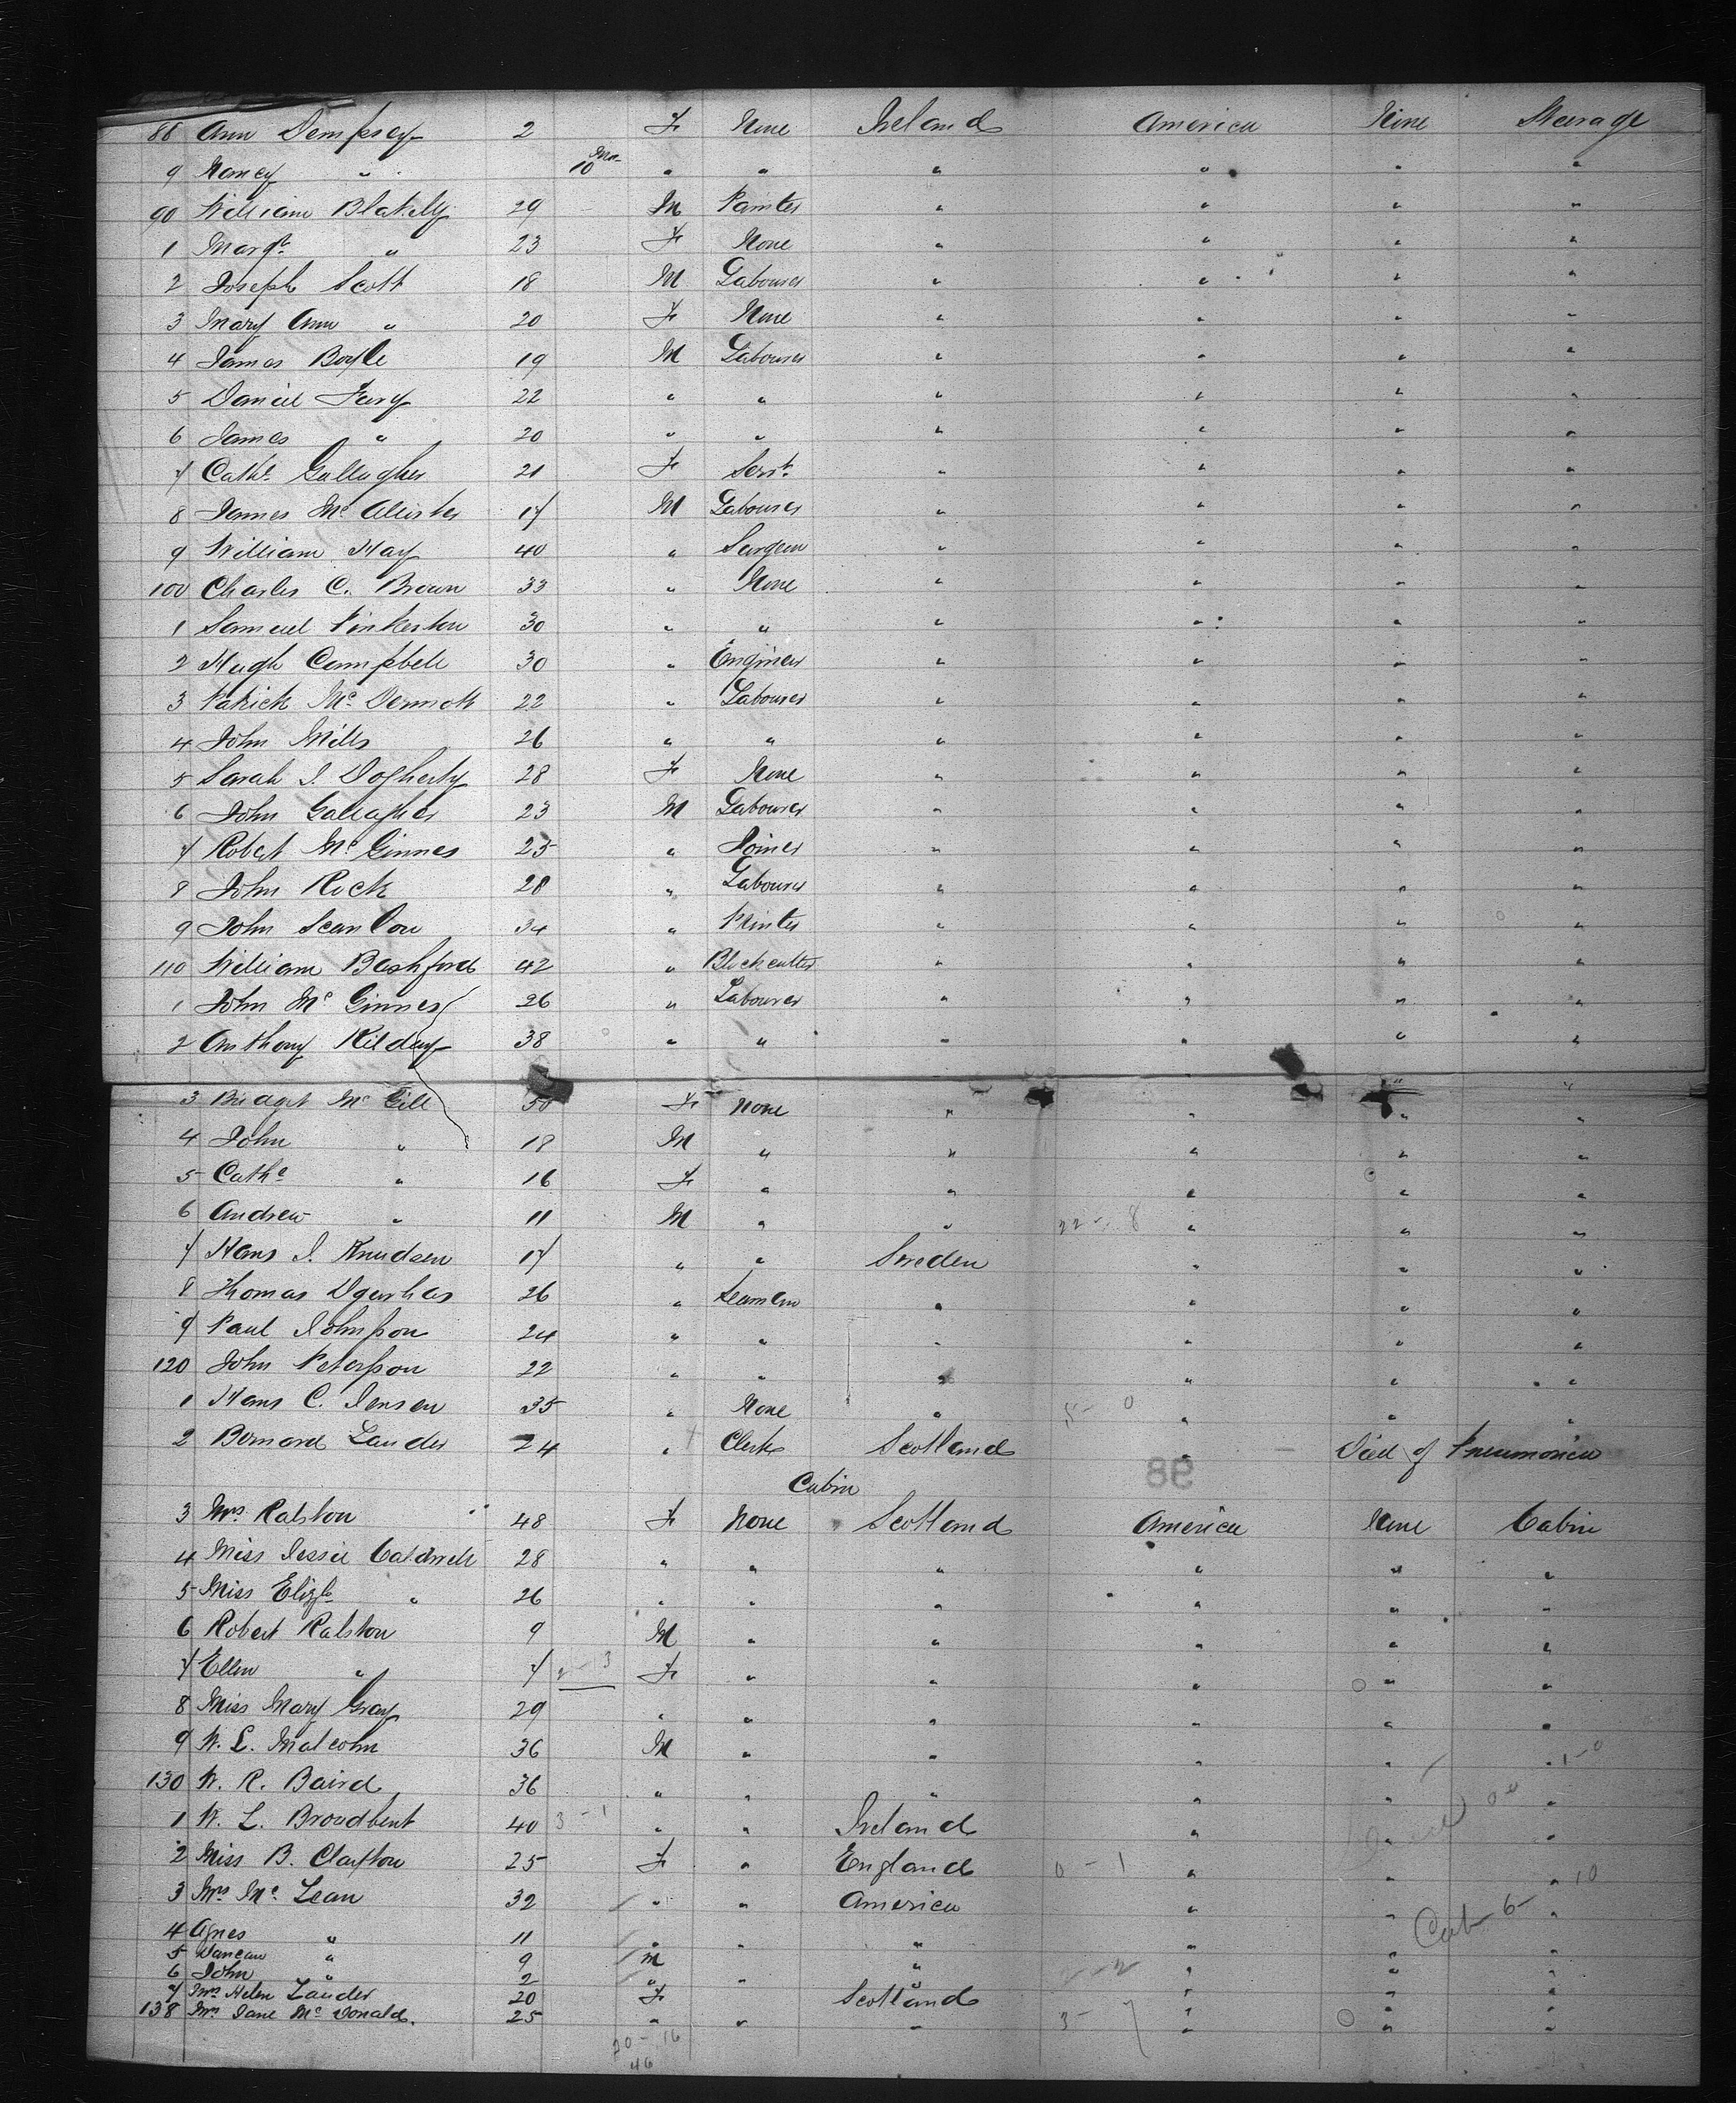 88 Ann Dempsey 2 F None Ireland America None Steerage
9 Nancy " 10 Mos " " " " " "
90 William Blakely 29 M Painter " " " "
1 Margt " 23 F None " " " "
2 Joseph Scott 18 M Labourer " " " "
3 Mary Ann " 20 F None " " " "
4 James Boyle 19 M Labourer " " " "
5 Daniel Fery 22 " " " " " "
6 James " 20 " " " " " "
7 Cathe Gallagher 21 F Servt " " " "
8 James Mc Alister 17 M Labourer " " " "
9 William Hay 40 " Surgeon " " " "
100 Charles C. Brown 33 " None " " " "
1 Samuel Pinkerton 30 " " " " " "
2 Hugh Campbell 30 " Engineer " " " "
3 Patrick Mc Dermott 22 " Labourer " " " "
4 John Mills 26 " " " " " "
5 Sarah J. Dogherty 28 F None " " " "
6 John Gallagher 23 M Labourer " " " "
7 Robert Mc Ginnes 25 " Joiner " " " "
8 John Rock 28 " Labourer " " " "
9 John Scanlon 34 " Printer " " " "
110 William Bashford 42 " Blockcutter " " " "
1 John Mc Ginnes 26 " Labourer " " " "
2 Anthony Kilday 38 " " " " " "
3 Bridget Mc Gill 50 F None " " " "
4 John " 18 M " " " " "
5 Cathe " 16 F " " " " "
6 Andrew " 11 M " " 22 - 8 " " "
7 Hans J. Knudsen 17 " " Sweden " " "
8 Thomas 26 " Seaman " " " "
9 Paul Johnson 24 " " " " " "
120 John Peterson 22 " " " " " "
1 Hans C. Jensen 35 " None " 5 - 0 " " "
2 Bernard Lauder 24 " Clerk Scotland " Died of Pneumonia
98
Cabin
3 Mrs Ralston 48 F None Scotland America None Cabin
4 Miss Jessie Caldwell 28 " " " " " "
5 Miss Elizth " 26 " " " " " "
6 Robert Ralston 9 M " " " " "
7 Ellen " 7 2 - 3 F " " " " "
8 Miss Mary Gray 29 " " " " " "
9 W. L. Malcolm 36 M " " " " " 1-0
130 W. R. Baird 36 " " " " " "
1 W. L. Broadbent 40 3 - 1 " " Ireland " " "
2 Miss B. Clayton 25 F " England 0 - 1 " " " 10
3 Mrs Mc Lean 32 " " America " " "
Cab 6
4 Agnes " 11 " " " " " "
5 Duncan " 9 M " " " " "
6 John " 2 " " " " " "
7 Mrs Helen Lauder 20 F Scotland " " "
138 Mrs Jane Mc Donald. 25 " " " 3 - 7 " " "
20 - 16
46